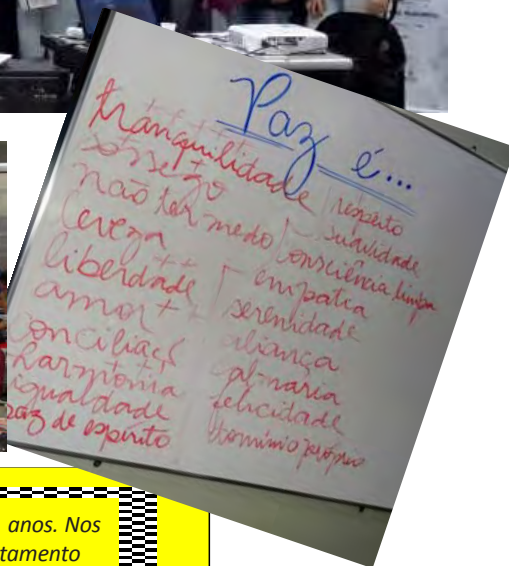 Paz é...
tranquilidade
sossego
não ter medo
leveza
liberdade
amor ++
conciliaç
harmonia
igualdade
paz de espírito
respeito
suavidade
consciência limpa
empatia
serenidade
aliança
calmaria
felicidade
domínio próprio
anos. Nos
tamento